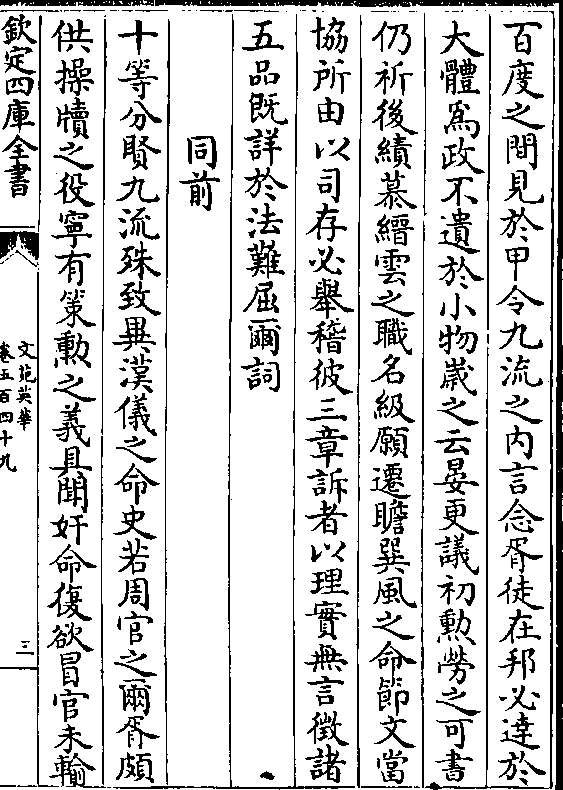 百度之間見於甲令九流之内言念胥徒在邦必達於
大體為政不遺於小物嵗之云晏更議初勲勞之可書
仍祈後績慕縉雲之職名級願遷瞻巽風之命節文當
協所由以司存必舉稽彼三章訴者以理實無言徴諸
五品既詳於法難屈爾詞
同前
十等分賢九流殊致異漢儀之命史若周官之爾胥頗
供操牘之役寧有策勲之義具聞奸命復欲冒官未輸
欽定四庫全書
文苑英華
卷五百四十九
三